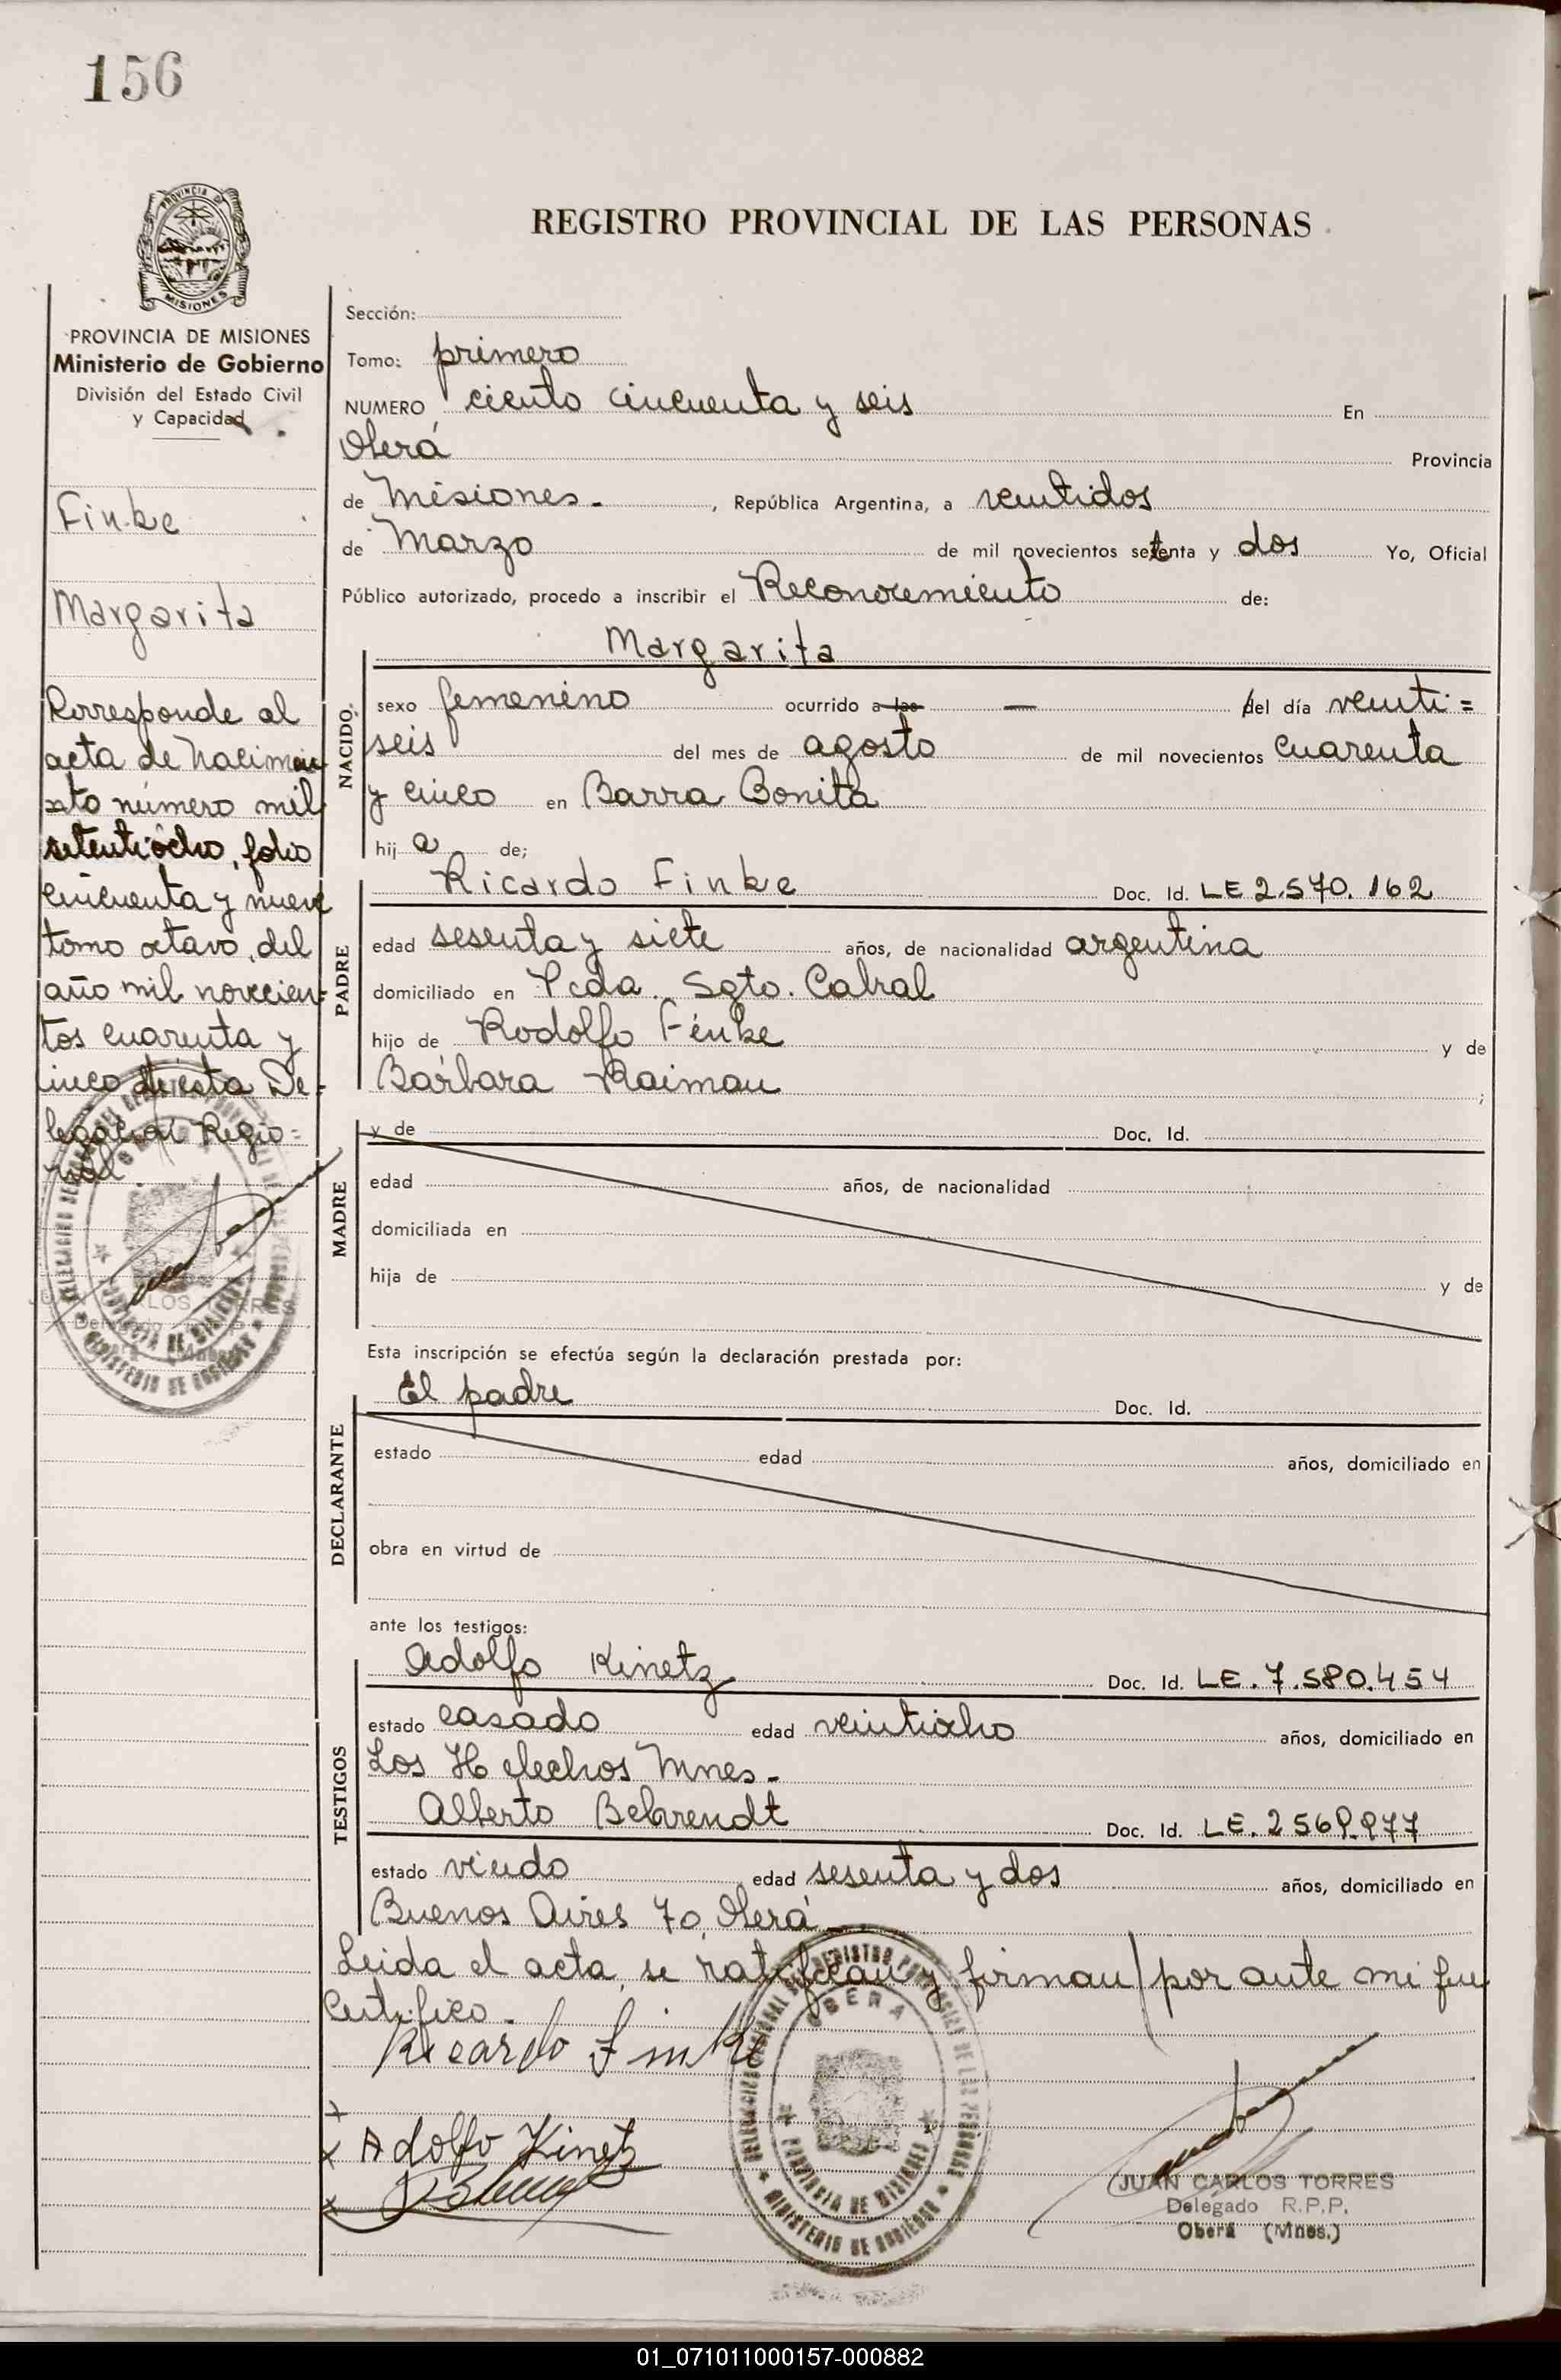 156
PROVINCIA DE MISIONES
Ministerio de Gobierno
División del Estado Civil
y Capacidad
Finke
Margarita
Corresponde al
acta de Nacimien
to número mil
setentiocho, folio
cincuenta y nueve
tomo octavo, del
año mil novecien-
tos cuarenta y
cinco de esta De-
legación Regio=
nal.
REGISTRO PROVINCIAL DE LAS PERSONAS
Sección:
Tomo: primero
NUMERO ciento cincuenta y seis En
Oberá Provincia
de Misiones.- , República Argentina, a veintidos
de Marzo de mil novecientos setenta y dos Yo, Oficial
Público autorizado, procedo a inscribir el Reconocimiento de:
NACIDO
Margarita
sexo femenino ocurrido a las — del día veinti=
seis del mes de agosto de mil novecientos cuarenta
y cinco en Barra Bonita
hij a de;
PADRE
Ricardo Finke Doc. Id. LE 2.570.162
edad sesenta y siete años, de nacionalidad argentina
domiciliado en Pcda. Sgto. Cabral
hijo de Rodolfo Finke y de
Bárbara Raiman ;
MADRE
y de Doc. Id.
edad años, de nacionalidad
domiciliada en
hija de y de
Esta inscripción se efectúa según la declaración prestada por:
DECLARANTE
El padre Doc. Id.
estado edad años, domiciliado en
obra en virtud de
ante los testigos:
TESTIGOS
Adolfo Kinetz Doc. Id. LE. 7.580.454
estado casado edad veintiocho años, domiciliado en
Los Helechos Mnes.-
Alberto Behrendt Doc. Id. LE. 2569.977
estado viudo edad sesenta y dos años, domiciliado en
Buenos Aires 70, Oberá.-
Leida el acta, se ratifican y firman por ante mi que
Certifico.-
Ricardo Finke
Adolfo Kinetz
OBERA
PROVINCIA DE MISIONES
MINISTERIO DE GOBIERNO
JUAN CARLOS TORRES
Delegado R.P.P.
Oberá (Mnes.)
01_071011000157-000882